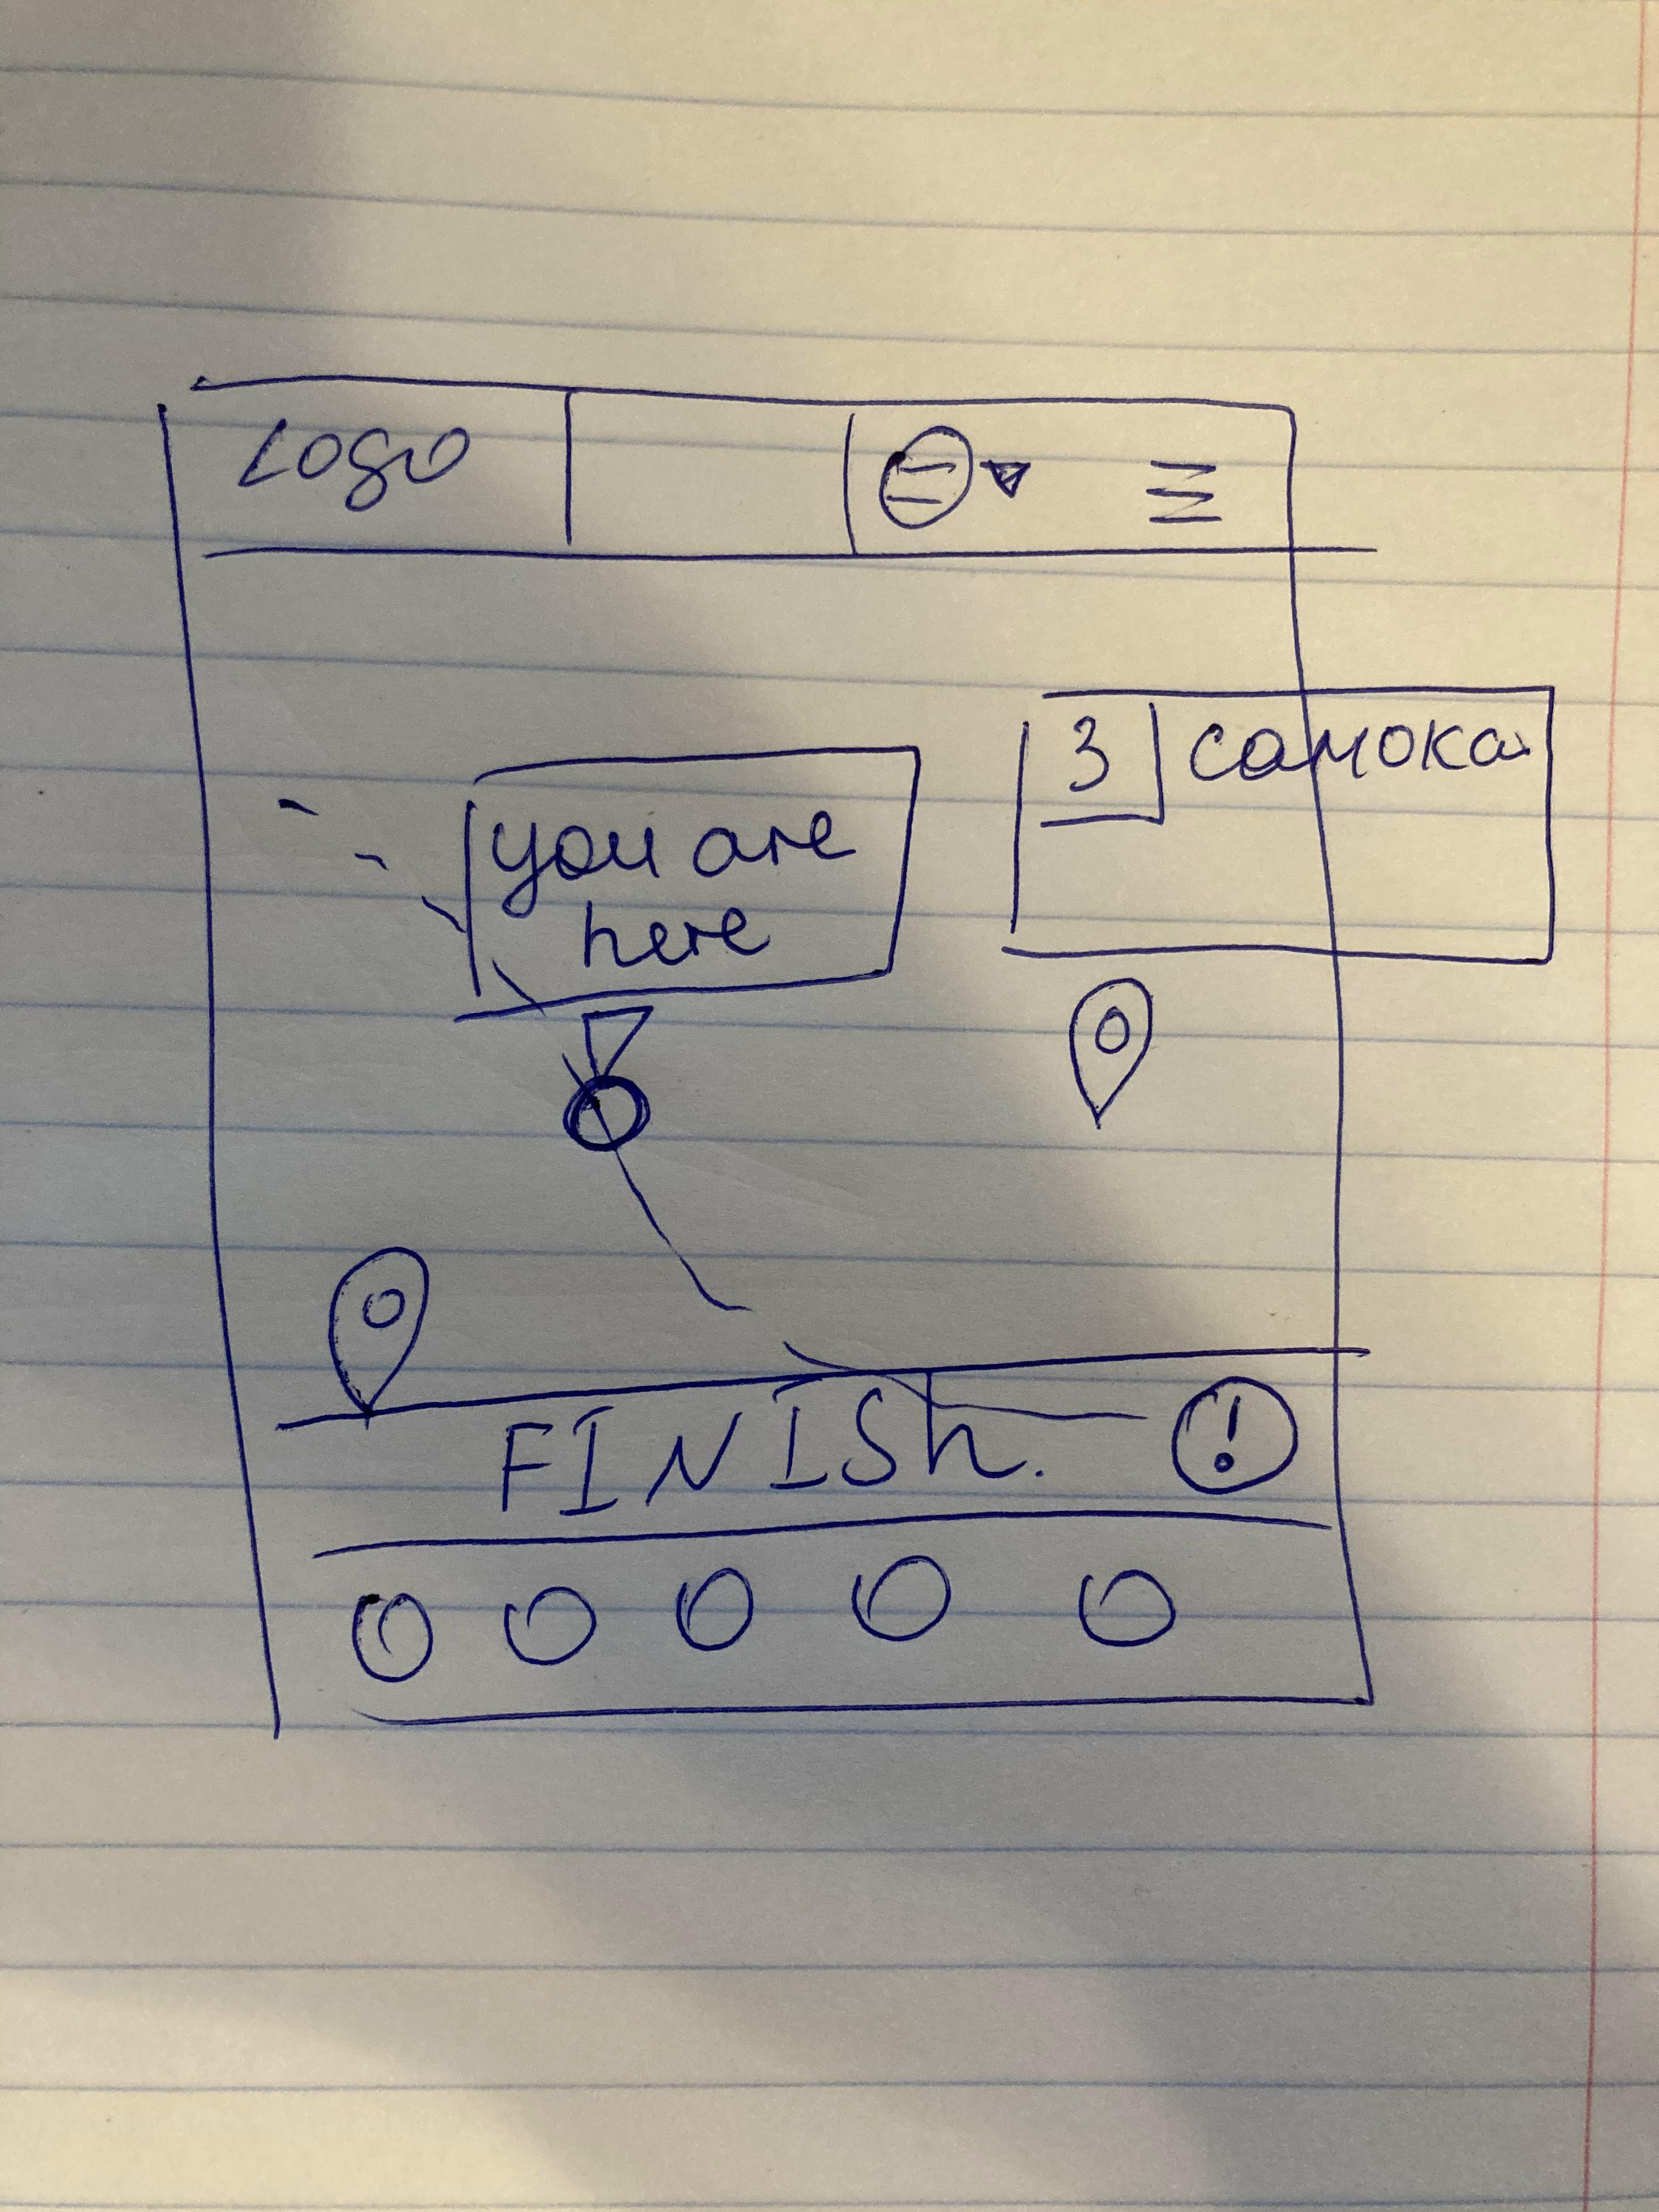 Logo
3 самока
you are
here
FINISh.
!